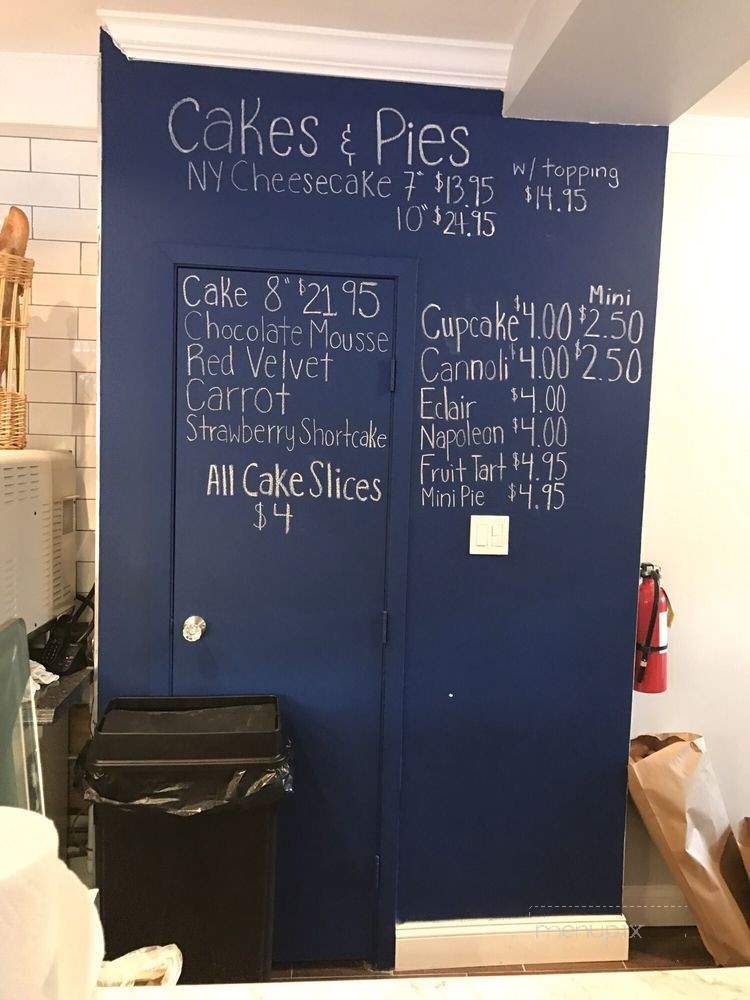 Cakes & Pies
NY Cheesecake 7" $13.95
10" $24.95
w/ topping
$14.95
Cake 8" $21.95
Chocolate Mousse
Red Velvet
Carrot
Strawberry Shortcake
All Cake Slices
$4
Mini
Cupcake $4.00 $2.50
Cannoli $4.00 $2.50
Eclair $4.00
Napoleon $4.00
Fruit Tart $4.95
Mini Pie $4.95
menupix